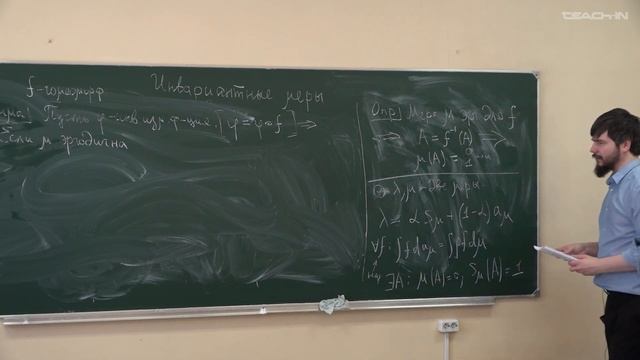 TEACHIN
f-гомеоморф Инвариантные меры
Пусть φ - φ = φ∘f ] ⟹
Если μ эргодична
Опр] Мера μ эрг для f
⟹ A = f⁻¹(A) ⟹
μ(A) = 1
λ, μ - две меры
λ = α S_μ + (1-α) a_μ
∀f: ∫f da_μ = ∫ρf dμ
∃A: μ(A)=0, S_μ(A)=1